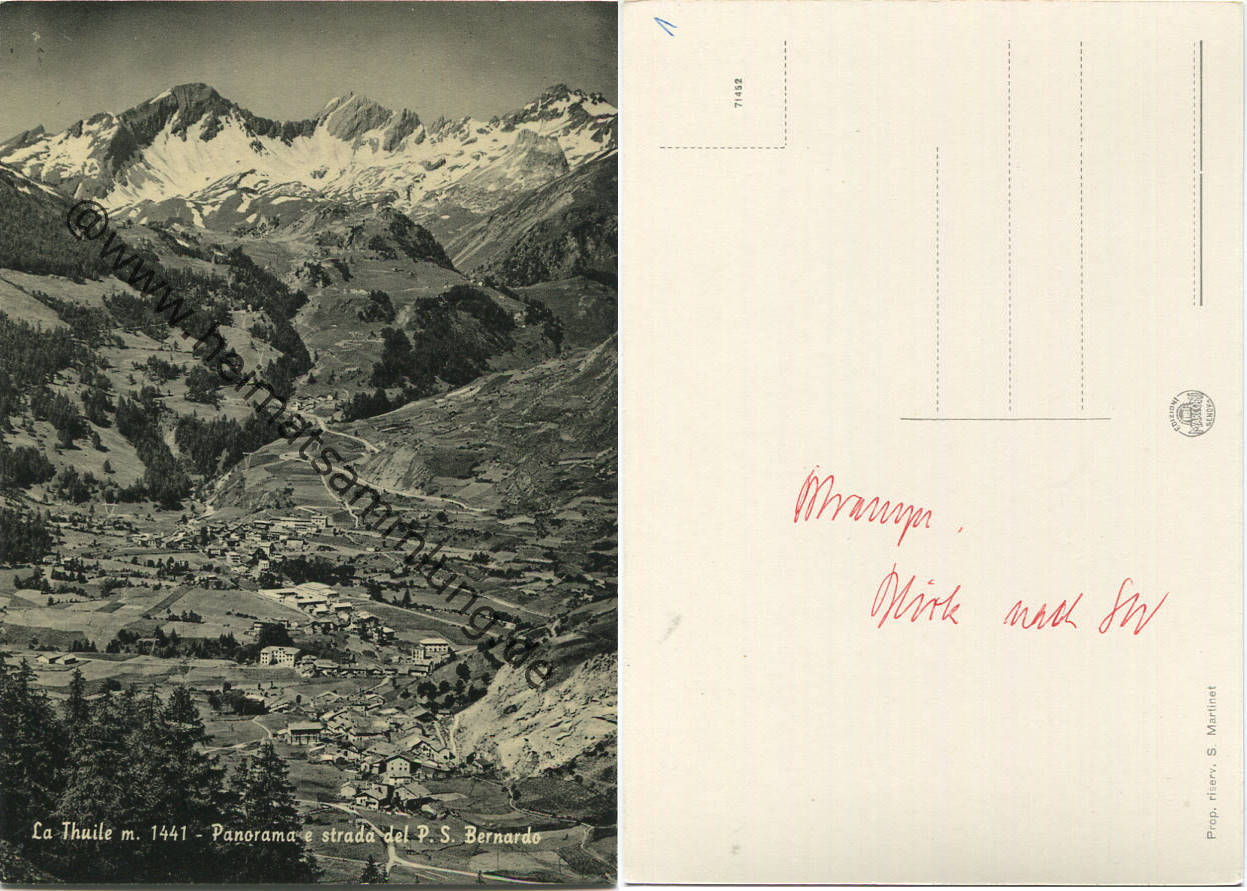 La Thuile m. 1441 - Panorama e strada del P. S. Bernardo
@www.heimatsammlung.de
1
71452
EDIZIONI
GENOVA
Blick nach SW
Prop. riserv. S. Martinet